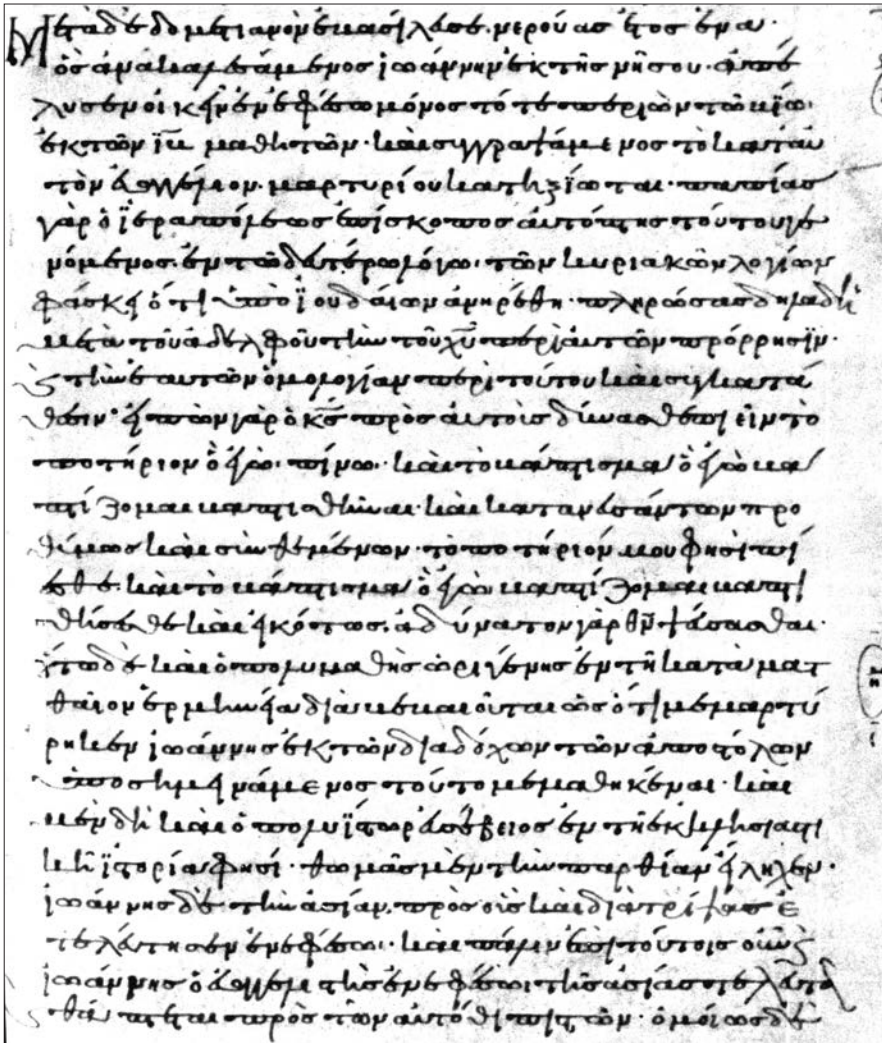 Μετὰ δὲ δομετιανὸν ἐβασίλευσε νερούας ἔτος ἕνα·
ὃς ἀνακαλεσάμενος ἰωάννην ἐκ τῆς νήσου· ἀπέ
λυσεν οἰκεῖν ἐν ἐφέσω μόνος τότε περιὼν τῶ βίω·
ἐκ τῶν ιβ μαθητῶν· καὶ συγγραψάμενος τὸ κατ' αὐ
τὸν εὐαγγέλιον. μαρτυρίου κατηξίωται· παπίας
γὰρ ὁ ἱεραπόλεως ἐπίσκοπος αὐτόπτης τούτου γε
νόμενος. ἐν τῶ δευτέρω λόγω· τῶν κυριακῶν λογίων
φάσκει ὅτι ὑπὸ ἰουδαίων ἀνηρέθη· πληρώσας δηλαδὴ
μετὰ τοῦ ἀδελφοῦ τὴν τοῦ χυ περὶ αὐτῶν πρόρρησιν·
καὶ τὴν ἑαυτῶν ὁμολογίαν περὶ τούτου καὶ συγκατά
θεσιν· εἰπὼν γὰρ ὁ κς πρὸς αὐτοὺς δύνασθε πιεῖν τὸ
ποτήριον ὃ ἐγὼ πίνω· καὶ τὸ βάπτισμα ὃ ἐγὼ βα
πτίζομαι βαπτισθῆναι· καὶ κατανευσάντων προ
θύμως καὶ συνθεμένων· τὸ ποτήριόν μου φησὶ πί
εσθε. καὶ τὸ βάπτισμα ὃ ἐγὼ βαπτίζομαι βαπτι
σθήσεσθε καὶ εἰκότως. ἀδύνατον γὰρ θν ψεύσασθαι·
οὕτω δὲ καὶ ὁ πολυμαθὴς ὠριγένης ἐν τῆ κατὰ ματ
θαῖον ἑρμηνεία διαβεβαιοῦται ὡς ὅτι μεμαρτύ
ρηκεν ἰωάννης ἐκ τῶν διαδόχων τῶν ἀποστόλων
ὑποσημεινάμενος τοῦτο μεμαθηκέναι· καὶ
μὲν δὴ καὶ ὁ πολυΐστωρ εὐσέβειος ἐν τῆ ἐκκλησιαστι
κῆ ἱστορία φησί· θωμᾶς μὲν τὴν παρθίαν εἴληχεν·
ἰωάννης δὲ τὴν ἀσίαν. πρὸς οὓς καὶ διατρίψας ἐ
τελεύτησεν ἐν ἐφέσω· καὶ πάλιν ἐπὶ τούτοις
ἰωάννης ὁ εὐαγγελιστὴς ἐν ἐφέσω τῆς ἀσίας τελευτᾶ
καὶ θάπτεται πρὸς τῶν αὐτόθι πιστῶν· ὁμοίως δὲ